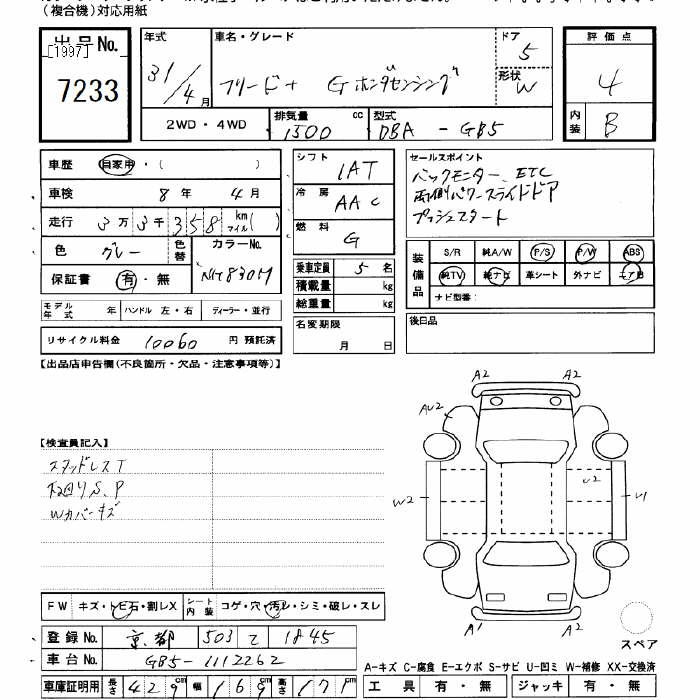 (複合機)対応用紙
出品No.
[1997]
7233
年式
31/4月
車名・グレード
フリード+ Gホンダセンシング
ドア
5
形状
W
評価点
4
内装
B
2WD・4WD
排気量
1500 cc
型式
DBA - GB5
車歴 自家用・( )
車検 8年 4月
走行 3万3千358 km マイル( )
色 グレー
色替
カラーNo.
NH830M
保証書 有・無
モデル年式 年
ハンドル 左・右
ディーラー・並行
リサイクル料金 10060 円 預託済
シフト
IAT
冷房
AAC
燃料
G
乗車定員 5 名
積載量 kg
総重量 kg
名変期限
月 日
セールスポイント
バックモニター、ETC
両側パワースライドドア
プッシュスタート
装備品
S/R 純A/W P/S P/W ABS
純TV 純ナビ 革シート 外ナビ エアB
ナビ型番:
後日品
【出品店申告欄(不良箇所・欠品・注意事項等)】
【検査員記入】
スタッドレスT
下回りS、P
Wカバーキズ
A2 A2
AU2
W2
U2
U1
A1 A2
スペア
FW キズ・トビ石・割レX
シート内装 コゲ・穴・汚レ・シミ・破レ・スレ
登録No. 京都 503 て 1845
車台No. GB5-1112262
車庫証明用 長さ 429cm 幅 169cm 高さ 171cm
A-キズ C-腐食 E-エクボ S-サビ U-凹ミ W-補修 XX-交換済
工具 有・無
ジャッキ 有・無